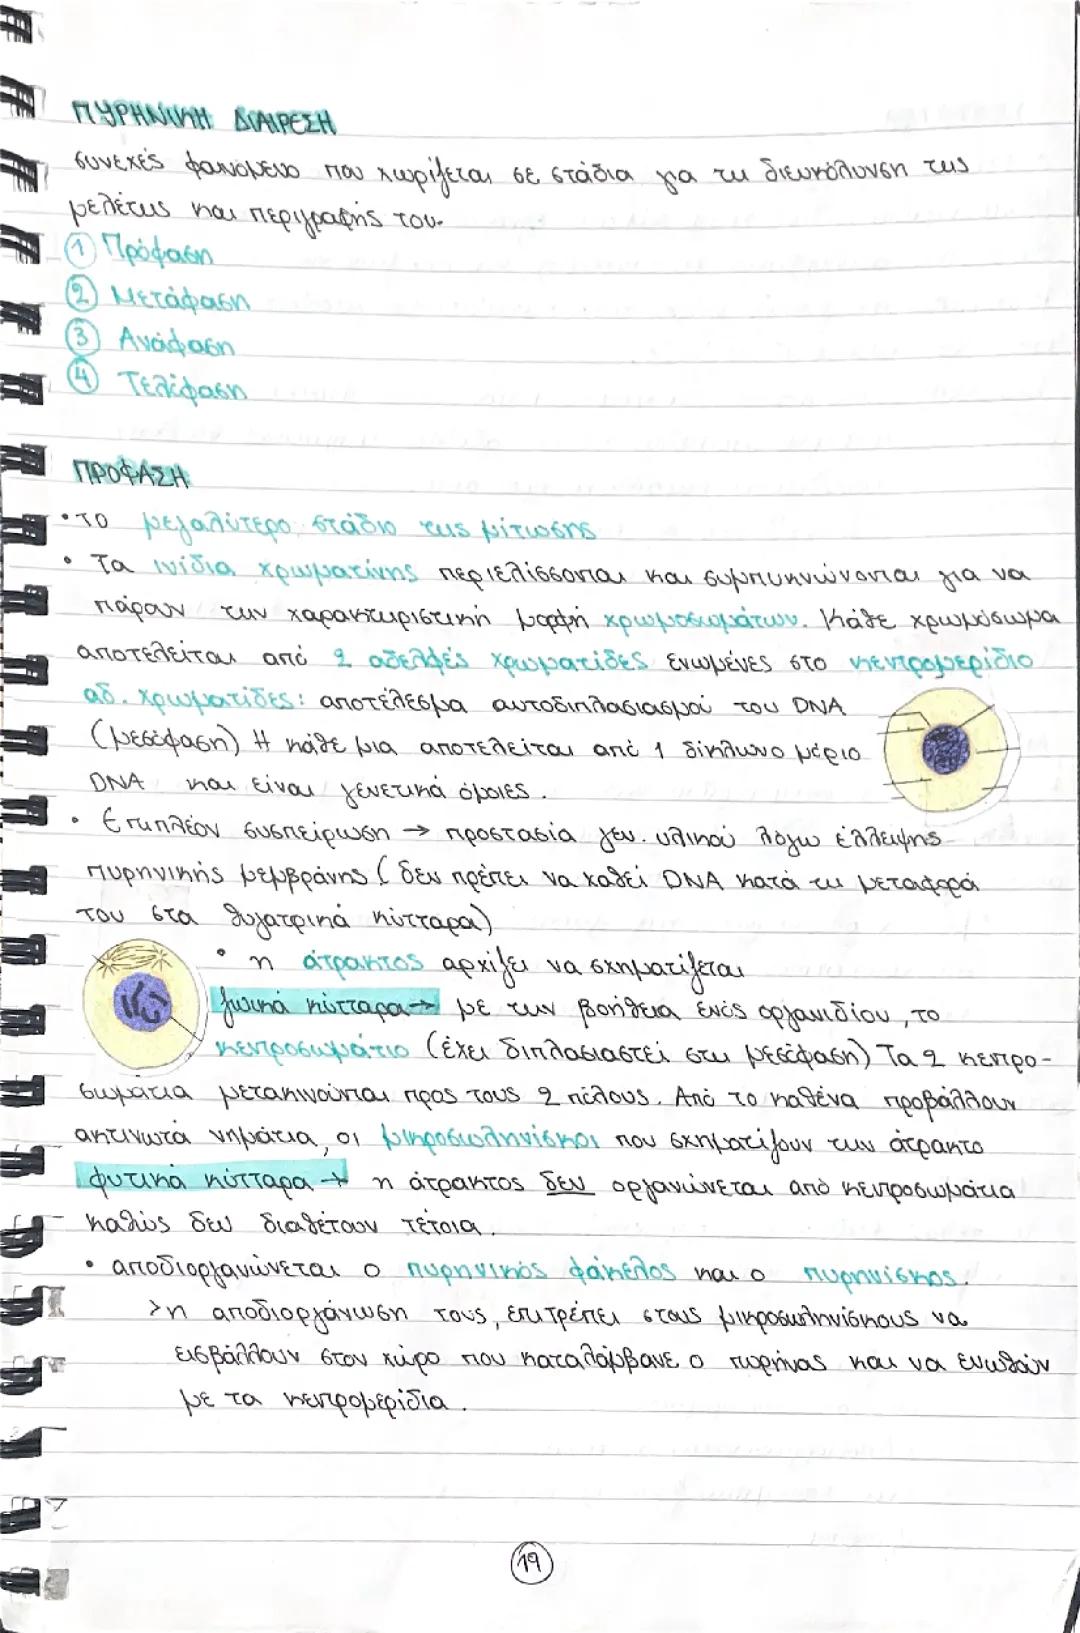 ΠΥΡΗΝΙΚΗ ΔΙΑΙΡΕΣΗ
συνεχές φαινόμενο που χωρίζεται σε στάδια για τη διευκόλυνση της
μελέτης και περιγραφής του.
① Πρόφαση
② Μετάφαση
③ Ανάφαση
④ Τελόφαση
ΠΡΟΦΑΣΗ
• το μεγαλύτερο στάδιο της μίτωσης
• Τα ινίδια χρωματίνης περιελίσσονται και συμπυκνώνονται για να
πάρουν την χαρακτηριστική μορφή χρωμοσωμάτων. Κάθε χρωμόσωμα
αποτελείται από 2 αδελφές χρωματίδες ενωμένες στο κεντρομερίδιο
αδ. χρωματίδες: αποτέλεσμα αυτοδιπλασιασμού του DNA
(μεσόφαση) Η κάθε μια αποτελείται από 1 δίκλωνο μόριο
DNA και είναι γενετικά όμοιες.
• Επιπλέον συσπείρωση → προστασία γεν. υλικού λόγω έλλειψης
πυρηνικής μεμβράνης (δεν πρέπει να χαθεί DNA κατά τη μεταφορά
του στα θυγατρικά κύτταρα)
• η άτρακτος αρχίζει να σχηματίζεται
ζωικά κύτταρα → με την βοήθεια ενός οργανιδίου, το
κεντροσωμάτιο (έχει διπλασιαστεί στη μεσόφαση) Τα 2 κεντρο-
σωμάτια μετακινούνται προς τους 2 πόλους. Από το καθένα προβάλλουν
ακτινωτά νημάτια, οι μικροσωληνίσκοι που σχηματίζουν την άτρακτο
φυτικά κύτταρα → η άτρακτος δεν οργανώνεται από κεντροσωμάτια
καθώς δεν διαθέτουν τέτοια.
• αποδιοργανώνεται ο πυρηνικός φάκελος και ο πυρηνίσκος.
>η αποδιοργάνωση τους, επιτρέπει στους μικροσωληνίσκους να
εισβάλλουν στον χώρο που καταλάμβανε ο πυρήνας και να ενωθούν
με τα κεντρομερίδια.
19